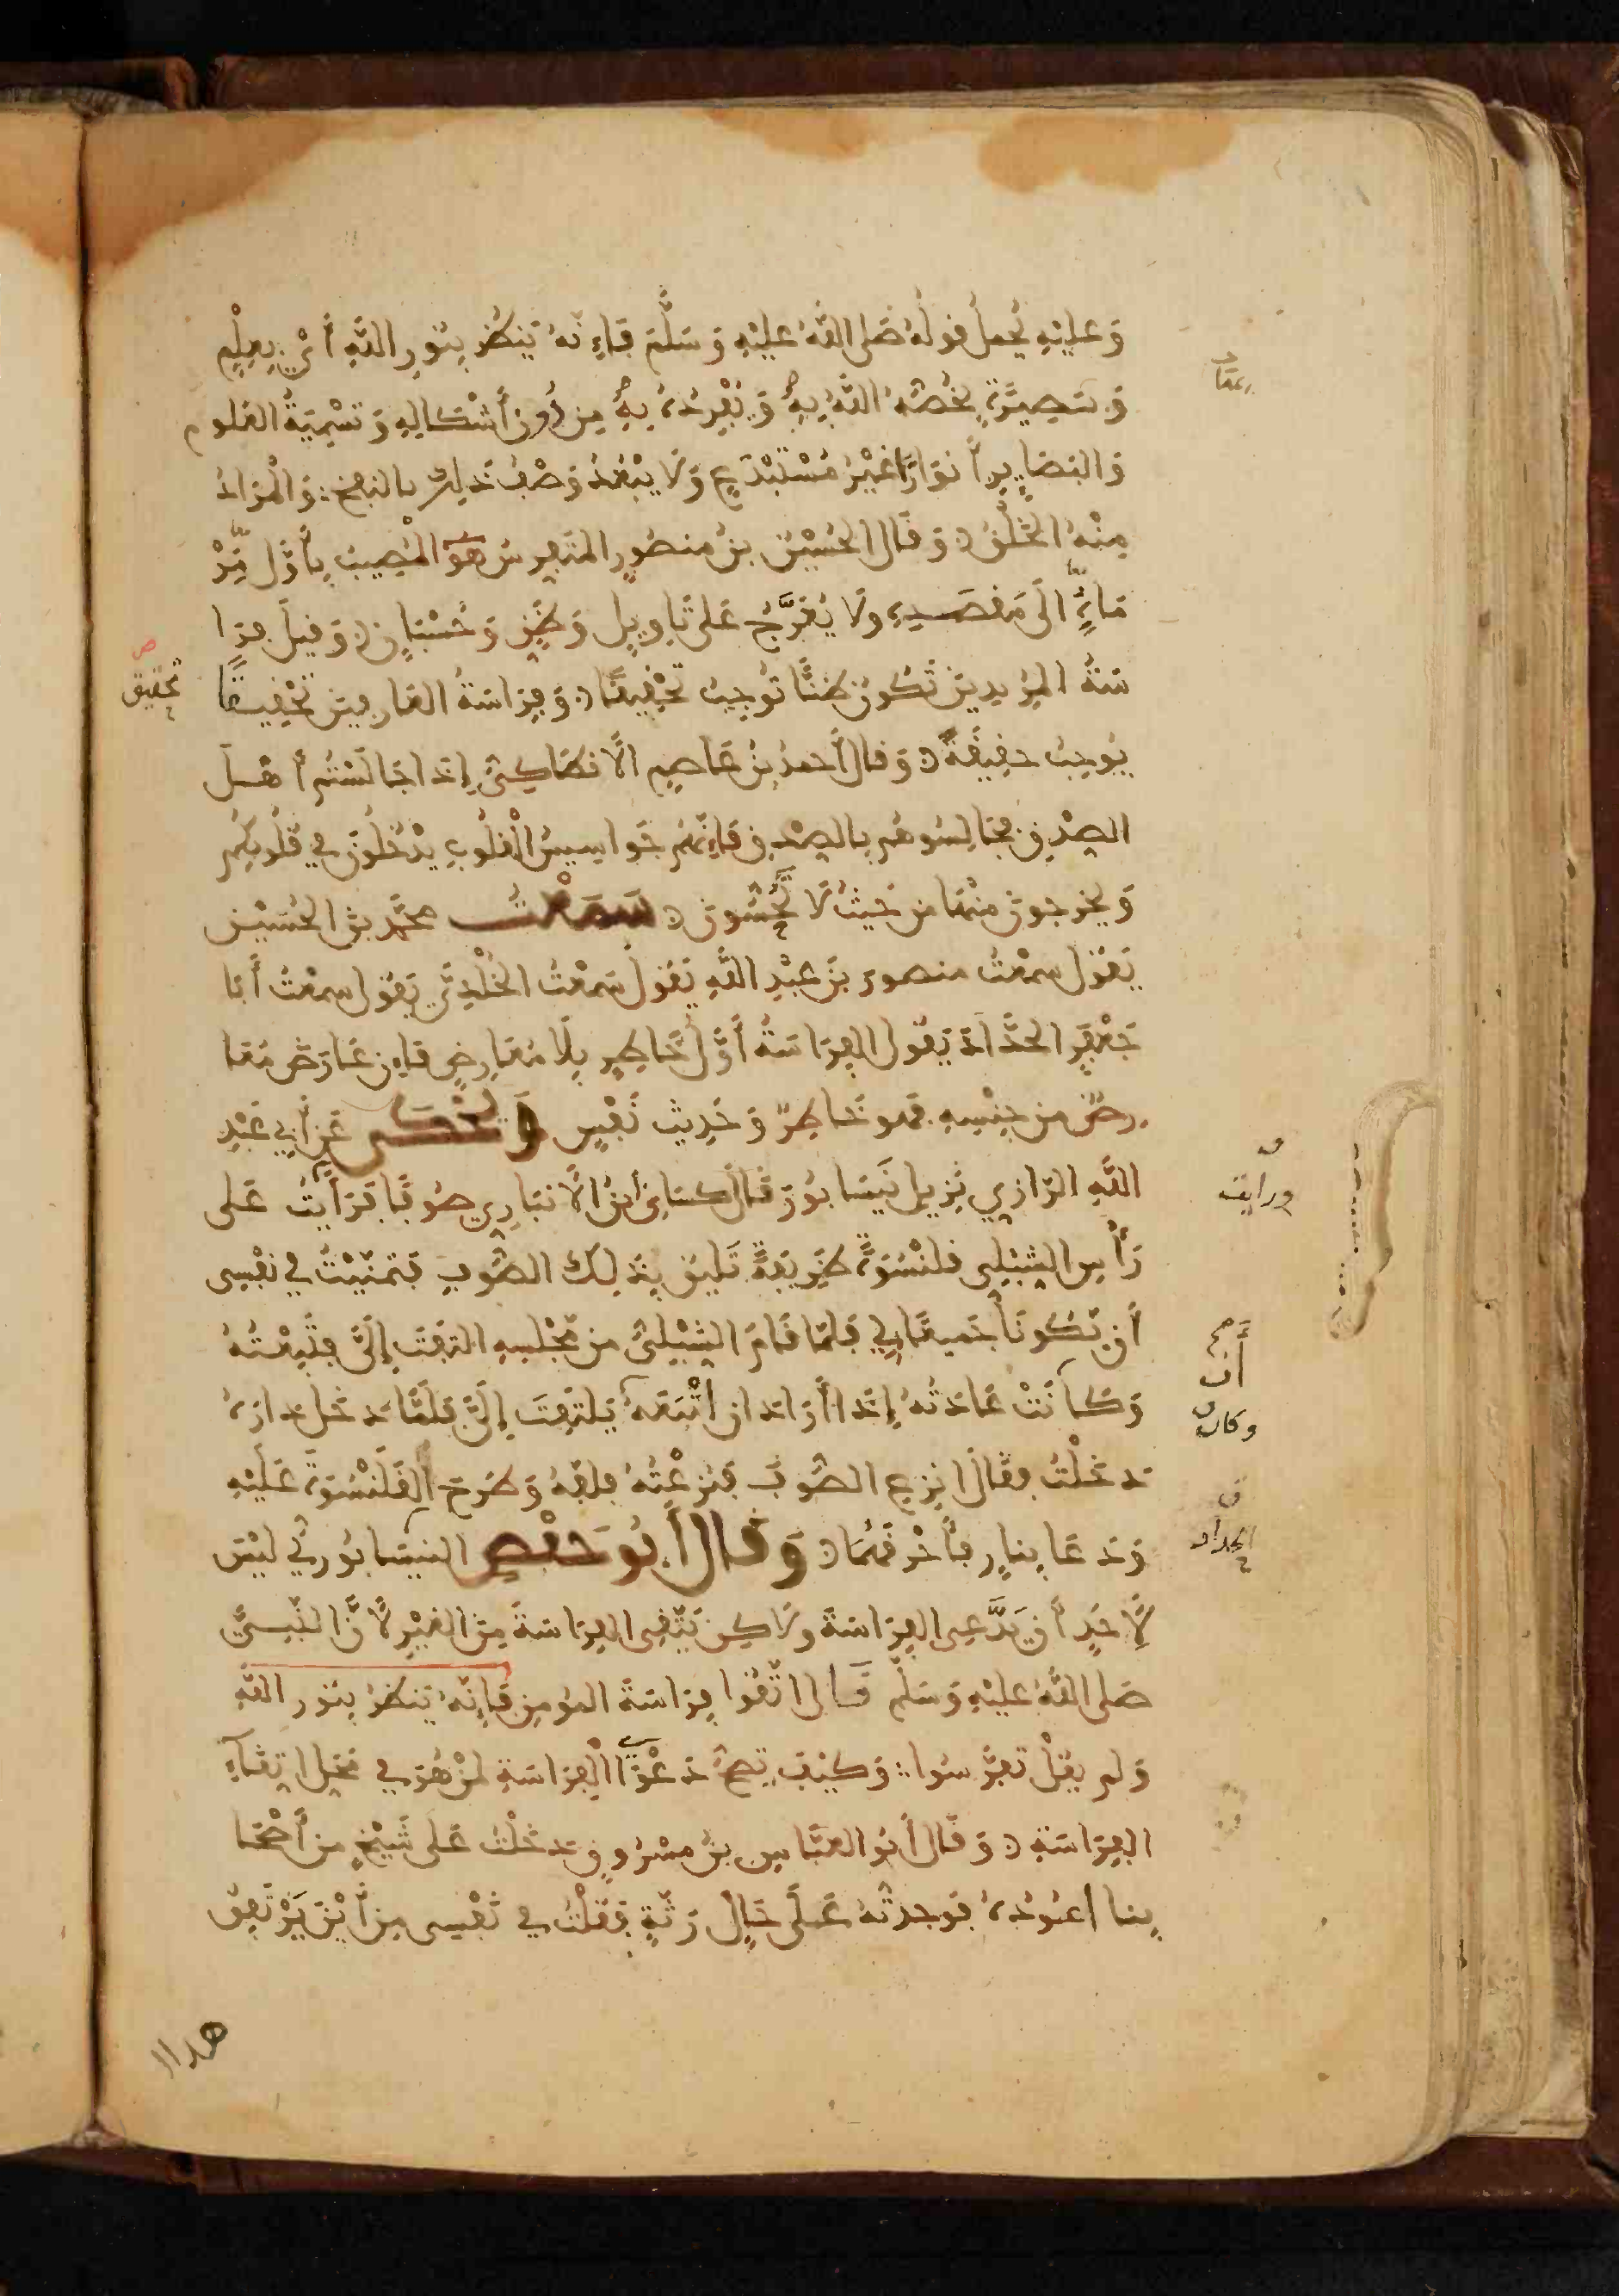 وَعليْهِ يُحمل قولُهُ صَلى اللهُ عليْهِ وَسَلَّمَ فَإِنَّهُ يَنظُرُ بِنُورِ اللَّهِ أَيْ بِعِلْمٍ
وَبَصِيرَةٍ يَخُصُّهُ اللهُ بِهِ وَيُفْرِدُهُ بِهِ مِن دُونِ أَشْكَالِهِ وَتَسْمِيَةُ العُلوم
وَالبَصَايِرِ أَنوَارًا غَيْرُ مُسْتَبْدَعٍ وَلَا يَبْعُدُ وَصْفُ ذَلِكَ بالنفخ وَالْمُرَادُ
مِنْهُ الخَلْقُ وَقَال الحُسَيْنُ بنُ منصُورٍ المتَفَرِّسُ هوَ الْمُصِيبُ بِأَوَّلِ مَرْ
مَاهُ إلَى مَقصَدِهِ ولَا يُعَرِّجُ عَلى تَاوِيلٍ وَظَنٍّ وَحُسْبَانٍ وَقيلَ فِرَا
سَةُ المُرِيدينَ تَكُونُ ظَنًّا تُوجِبُ تَحْقِيقًا وَفِرَاسَةُ العَارِفينَ تَحْقِيقًا
يُوجِبُ حقِيقَةً وَقال أَحمدُ بْنُ عَاصِمٍ الأَنطَاكِيُّ إِذَا جَالَسْتُمُ أَهْلَ
الصِدْقِ فجَالِسُوهُم بالصِدْقِ فَإِنَّهُمْ جَوَاسِيسُ الْقلُوبِ يَدْخُلُونَ في قُلُوبِكُمْ
وَيَخرجونَ منْهَا من حَيثُ لَا تَحُسُّونَ سَمعْتُ محَمَّدَ بنَ الحُسَيْنِ
يَقُول سمعْتُ منصورَ بنَ عَبْدِ اللَّهِ يَقُول سَمعْتُ الخُلْدِيَّ يَقُول سمعْتُ أَبَا
جَعْفَرٍ الحَدَّادَ يَقُولُ الفِرَاسَةُ أَوَّلُ خَاطِرٍ بِلَا مُعَارِضٍ فإِن عَارَضَ مُعَا
رضٌ من جِنْسِهِ فهو خَاطِرٌ وَحَدِيثُ نَفْسٍ وَيُحْكَى عَن أَبِي عَبْدِ
اللَّهِ الرَّازِي نَزِيلِ نَيْسَابُورَ قَال كسَانِي ابنُ الأَنبَارِي صُوفًا فرَأَيْتُ عَلى
رَأْسِ الشِّبْلِي قلنْسُوَةً ظَرِيفَةً تَلِيقُ بِذَلِكَ الصُّوفِ فَتَمَنَّيْتُ في نَفْسِى
أَن تَكُونَا جَميعًا لِي فلمَّا قَامَ الشِّبْلِيُّ من مَجْلسِهِ التفَتَ إِلَيَّ فتَبِعْتُهُ
وَكَانَتْ عَادَتُهُ إِذَا أَرَادَ ان أتْبَعَهُ يَلتَفِتَ إِلَيَّ فلَمَّا دَخَلَ دَارَهُ
دَخَلْتُ فقَالَ انزِعِ الصُّوفَ فَنزعْتُهُ فلفَّهُ وَطَرَحَ القَلَنْسُوَةَ عَلَيْهِ
وَدَعَا بِنَارٍ فَأَحْرَقَهُمَا وَقَال أَبُو حَفْصٍ النيْسَابُورِيُّ ليْسَ
لأَحَدٍ أَن يَدَّعِى الفِرَاسَةَ ولَاكِن يَتَّقِى الفِرَاسَةَ مِنَ الغَيْرِ لأَنَّ النَّبيَّ
صَلى اللهُ عليْهِ وَسَلَّم قَال اتَّقُوا فِرَاسَةَ المُومِنِ فَإِنَّهُ يَنظُرُ بِنُورِ اللهِ
وَلم يقُلْ تَفَرَّسُوا وَكيْفَ تَصِحُّ دَعْوَى الْفِرَاسَةِ لمَنْ هُوَ في مَحَلِّ اتِّقَاءِ
الفِرَاسَةِ وَقَال أَبُو العَبَّاسِ بنُ مسْرُوقٍ دَخَلْتُ عَلى شَيْخٍ من أَصْحَا
بِنا أَعُودُهُ فوَجدتُّهُ عَلَى حَالٍ رَثَّةٍ فَقُلْتُ في نَفْسِى مِن أَيْنَ يَرْتَفِقُ
هذا
تحقيق
ورايت
أن
وكان
الحداد